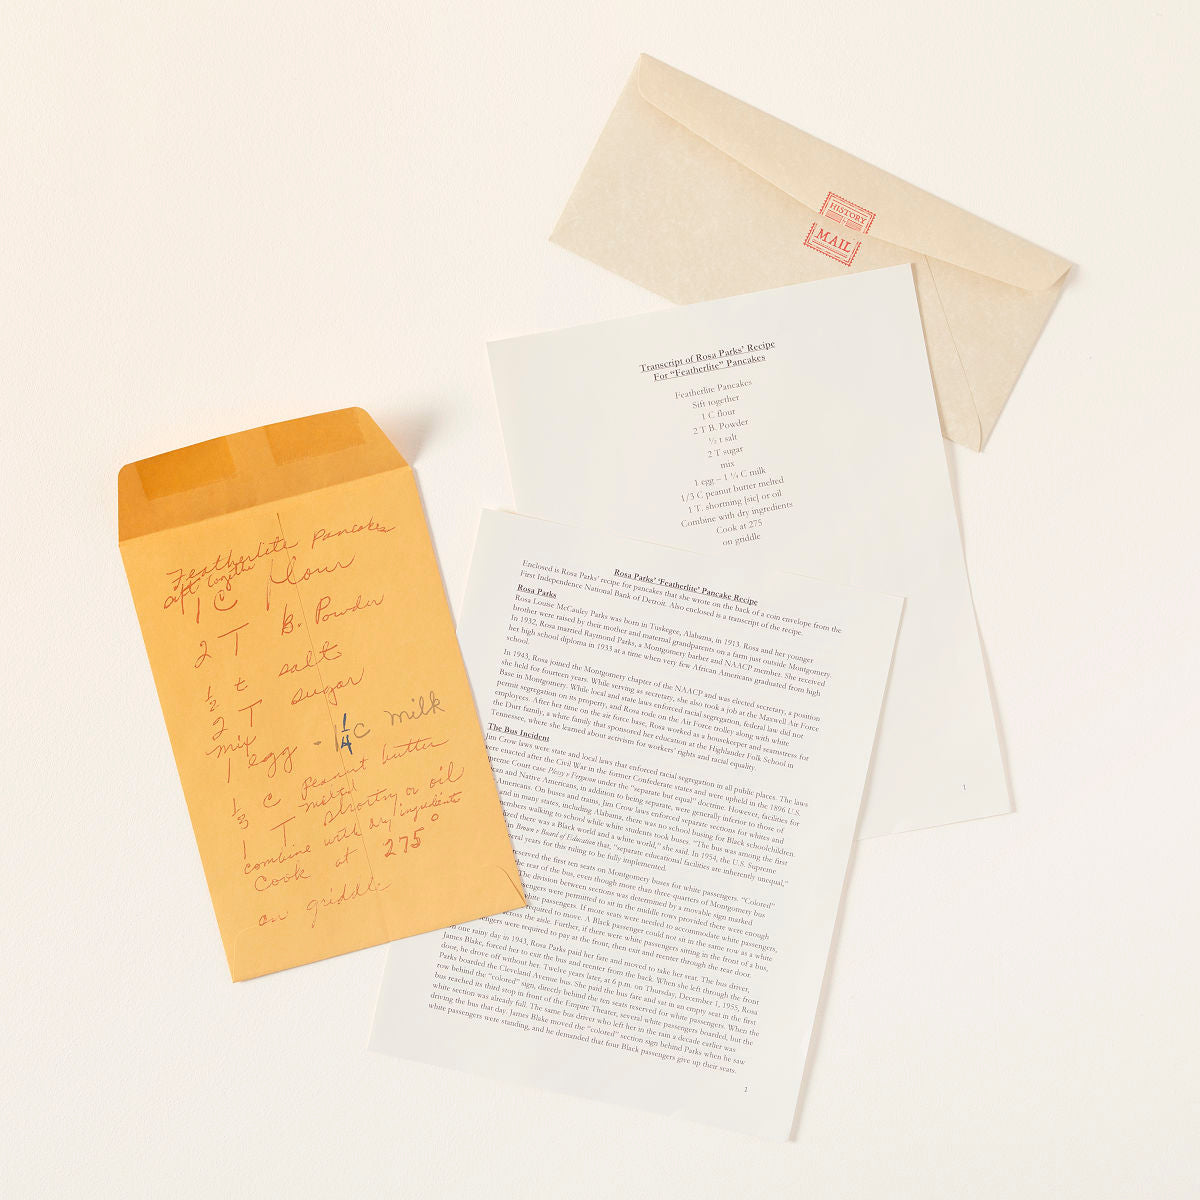 HISTORY
BY
MAIL
Transcript of Rosa Parks' Recipe
For "Featherlite" Pancakes
Featherlite Pancakes
Sift together
1 C flour
2 T B. Powder
½ t salt
2 T sugar
mix
1 egg – 1 ¼ C milk
1/3 C peanut butter melted
1 T. shortning [sic] or oil
Combine with dry ingredients
Cook at 275
on griddle
1
Featherlite Pancakes
sift together
1 C flour
2 T B. Powder
½ t salt
2 T sugar
mix
1 egg - 1 ¼ C milk
⅓ C Peanut butter
melted
1 T shortng or oil
combine with dry ingredients
Cook at 275°
on griddle
Rosa Parks' 'Featherlite' Pancake Recipe
Enclosed is Rosa Parks' recipe for pancakes that she wrote on the back of a coin envelope from the
First Independence National Bank of Detroit. Also enclosed is a transcript of the recipe.
Rosa Parks
Rosa Louise McCauley Parks was born in Tuskegee, Alabama, in 1913. Rosa and her younger
brother were raised by their mother and maternal grandparents on a farm just outside Montgomery.
In 1932, Rosa married Raymond Parks, a Montgomery barber and NAACP member. She received
her high school diploma in 1933 at a time when very few African Americans graduated from high
school.
In 1943, Rosa joined the Montgomery chapter of the NAACP and was elected secretary, a position
she held for fourteen years. While serving as secretary, she also took a job at the Maxwell Air Force
Base in Montgomery. While local and state laws enforced racial segregation, federal law did not
permit segregation on its property, and Rosa rode on the Air Force trolley along with white
employees. After her time on the air force base, Rosa worked as a housekeeper and seamstress for
the Durr family, a white family that sponsored her education at the Highlander Folk School in
Tennessee, where she learned about activism for workers' rights and racial equality.
The Bus Incident
Jim Crow laws were state and local laws that enforced racial segregation in all public places. The laws
were enacted after the Civil War in the former Confederate states and were upheld in the 1896 U.S.
preme Court case Plessy v Ferguson under the "separate but equal" doctrine. However, facilities for
can and Native Americans, in addition to being separate, were generally inferior to those of
Americans. On buses and trains, Jim Crow laws enforced separate sections for whites and
and in many states, including Alabama, there was no school busing for Black schoolchildren.
members walking to school while white students took buses. "The bus was among the first
lized there was a Black world and a white world," she said. In 1954, the U.S. Supreme
in Brown v Board of Education that, "separate educational facilities are inherently unequal,"
veral years for this ruling to be fully implemented.
reserved the first ten seats on Montgomery buses for white passengers. "Colored"
the rear of the bus, even though more than three-quarters of Montgomery bus
The division between sections was determined by a movable sign marked
sengers were permitted to sit in the middle rows provided there were enough
white passengers. If more seats were needed to accommodate white passengers,
required to move. A Black passenger could not sit in the same row as a white
across the aisle. Further, if there were white passengers sitting in the front of a bus,
engers were required to pay at the front, then exit and reenter through the rear door.
n one rainy day in 1943, Rosa Parks paid her fare and moved to take her seat. The bus driver,
James Blake, forced her to exit the bus and reenter from the back. When she left through the front
door, he drove off without her. Twelve years later, at 6 p.m. on Thursday, December 1, 1955, Rosa
Parks boarded the Cleveland Avenue bus. She paid the bus fare and sat in an empty seat in the first
row behind the "colored" sign, directly behind the ten seats reserved for white passengers. When the
bus reached its third stop in front of the Empire Theater, several white passengers boarded, but the
white section was already full. The same bus driver who left her in the rain a decade earlier was
driving the bus that day. James Blake moved the "colored" section sign behind Parks when he saw
white passengers were standing, and he demanded that four Black passengers give up their seats.
1